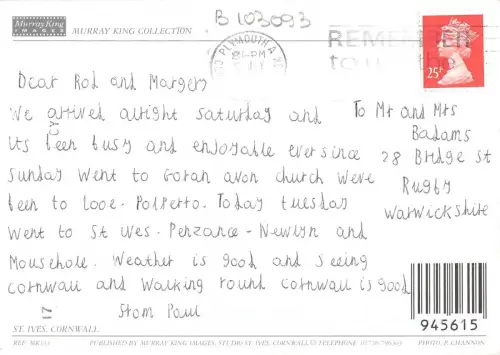 B 103093
Murray King
IMAGES
MURRAY KING COLLECTION
PLYMOUTH & 
-PM
REMEMBER
to u
25P
Dear Rod and Margery
We arrived alright saturday and
its been busy and enjoyable ever since
Sunday went to Goran avon church weve
been to looe - Polperro. Today tuesday
went to St Ives - Penzance - Newlyn and
Mousehole. Weather is good and seeing
cornwall and walking round cornwall is good
from Paul
To Mr and Mrs
Badams
28 Bridge st
Rugby
Warwickshire
17
945615
ST. IVES. CORNWALL
REF: MK
PUBLISHED BY MURRAY KING IMAGES, STUDIO ST. IVES. CORNWALL
PHOTO: P. CHANNON